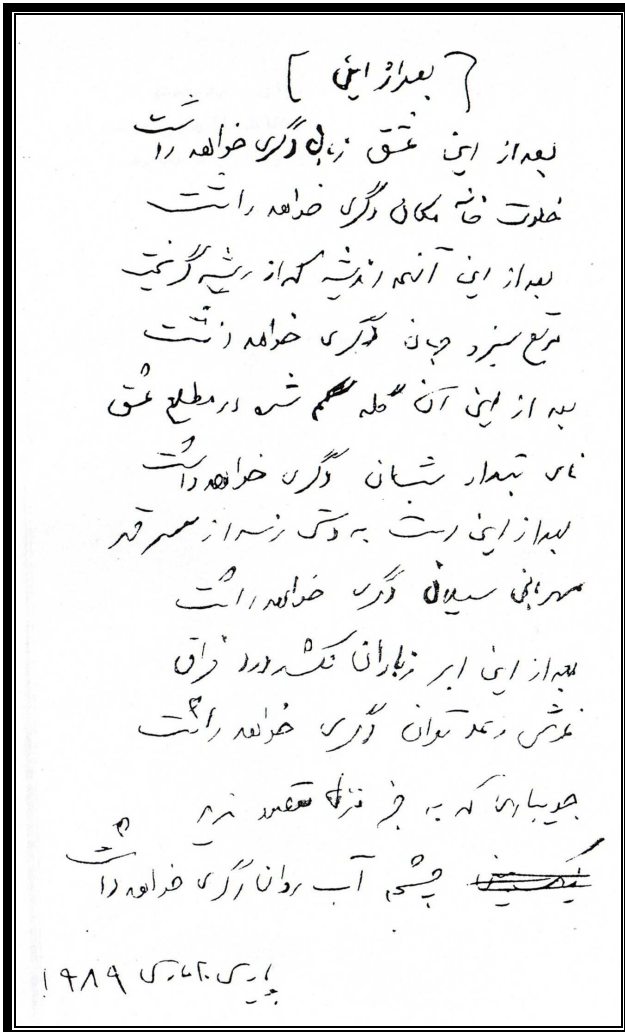 [ بعد از این ]
بعد از این عشق زبان دگری خواهد داشت
خلوت خانه مکان دگری خواهد داشت
بعد از این آنهمه اندیشه که از ریشه گریخت
مرتع سبز و جهان دگری خواهد داشت
بعد از این آن گله گم شده در مطلع عشق
نای تبدار شبان دگری خواهد داشت
بعد از این دست به دستی نرسد از سر قهر
مهربانی سیلان دگری خواهد داشت
بعد از این ابر ز باران نکشد درد فراق
غرش رعد توان دگری خواهد داشت
جویباری که به جز مقصد
چشمه آب روان دگری خواهد داشت
پاریس ۲۰ مارس ۱۹۸۹